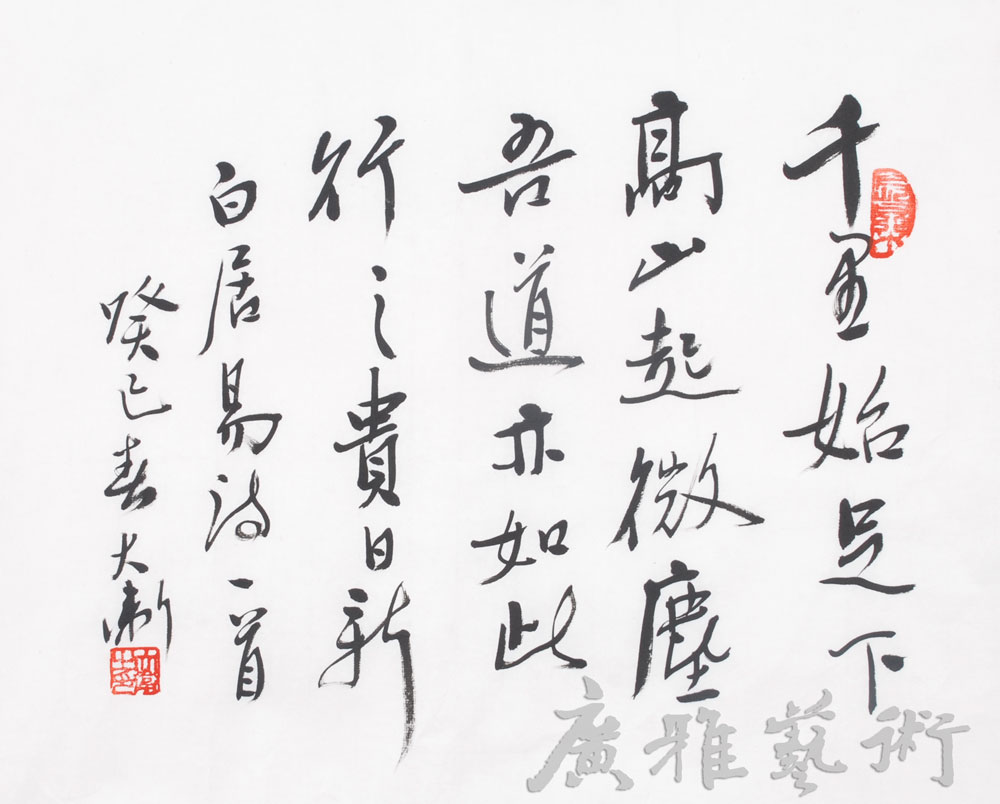 千里始足下
髙山起微塵
吾道亦如此
行之貴日新
白居易詩一首
癸巳春大衛
廣雅藝術